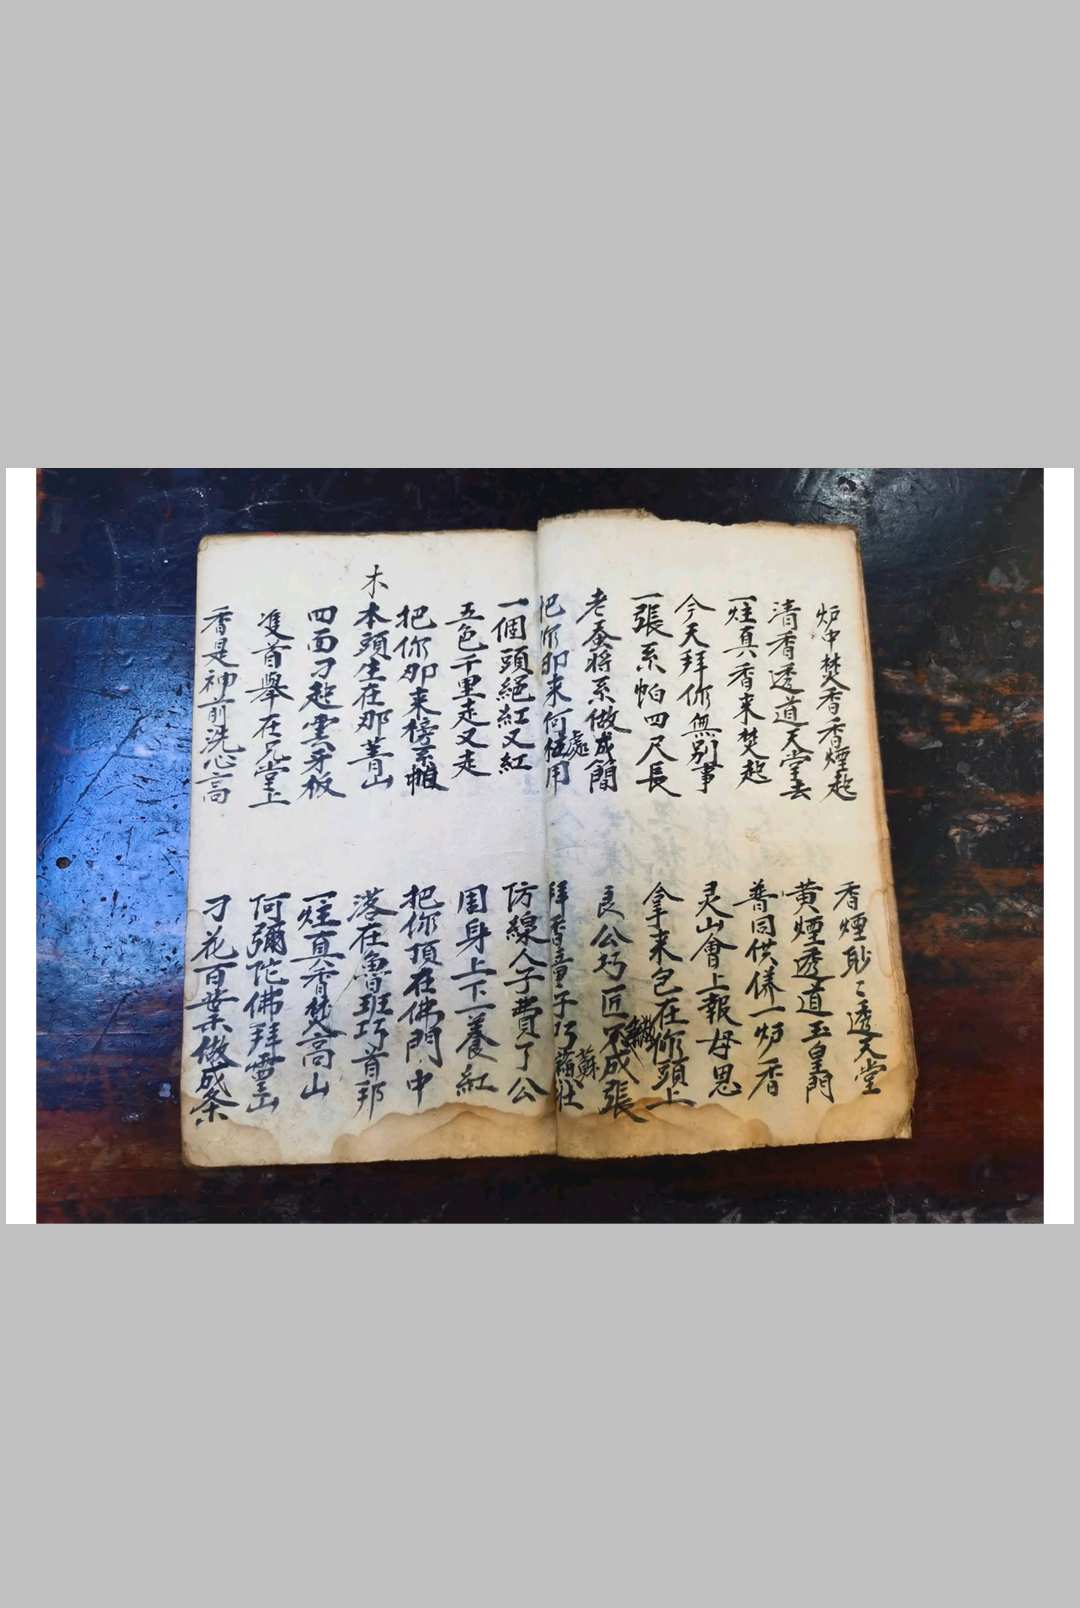 炉中焚香香煙起
香煙耖〻透天堂
清香透道天堂去
黄煙透道玉皇門
一炷真香来焚起
普同供俸一炉香
今天拜你無别事
灵山會上報母恩
一張系帕四尺長
拿来包在你頭上
老蚕将系做成簡
良公巧匠不成張
把你卯来何處用
拜香童子巧蘇壮
一個頭絕紅又紅
仿線人子費了公
五色千里走又走
囯身上下一養紅
把你卯来榜系帽
把你頂在佛門中
木
本頭生在那菁山
落在魯班巧首邦
四面刁起雲牙板
一炷真香焚高山
进首舉在兄堂上
何彌陀佛拜雪山
香是神前洗心高
刁花百葉做成条